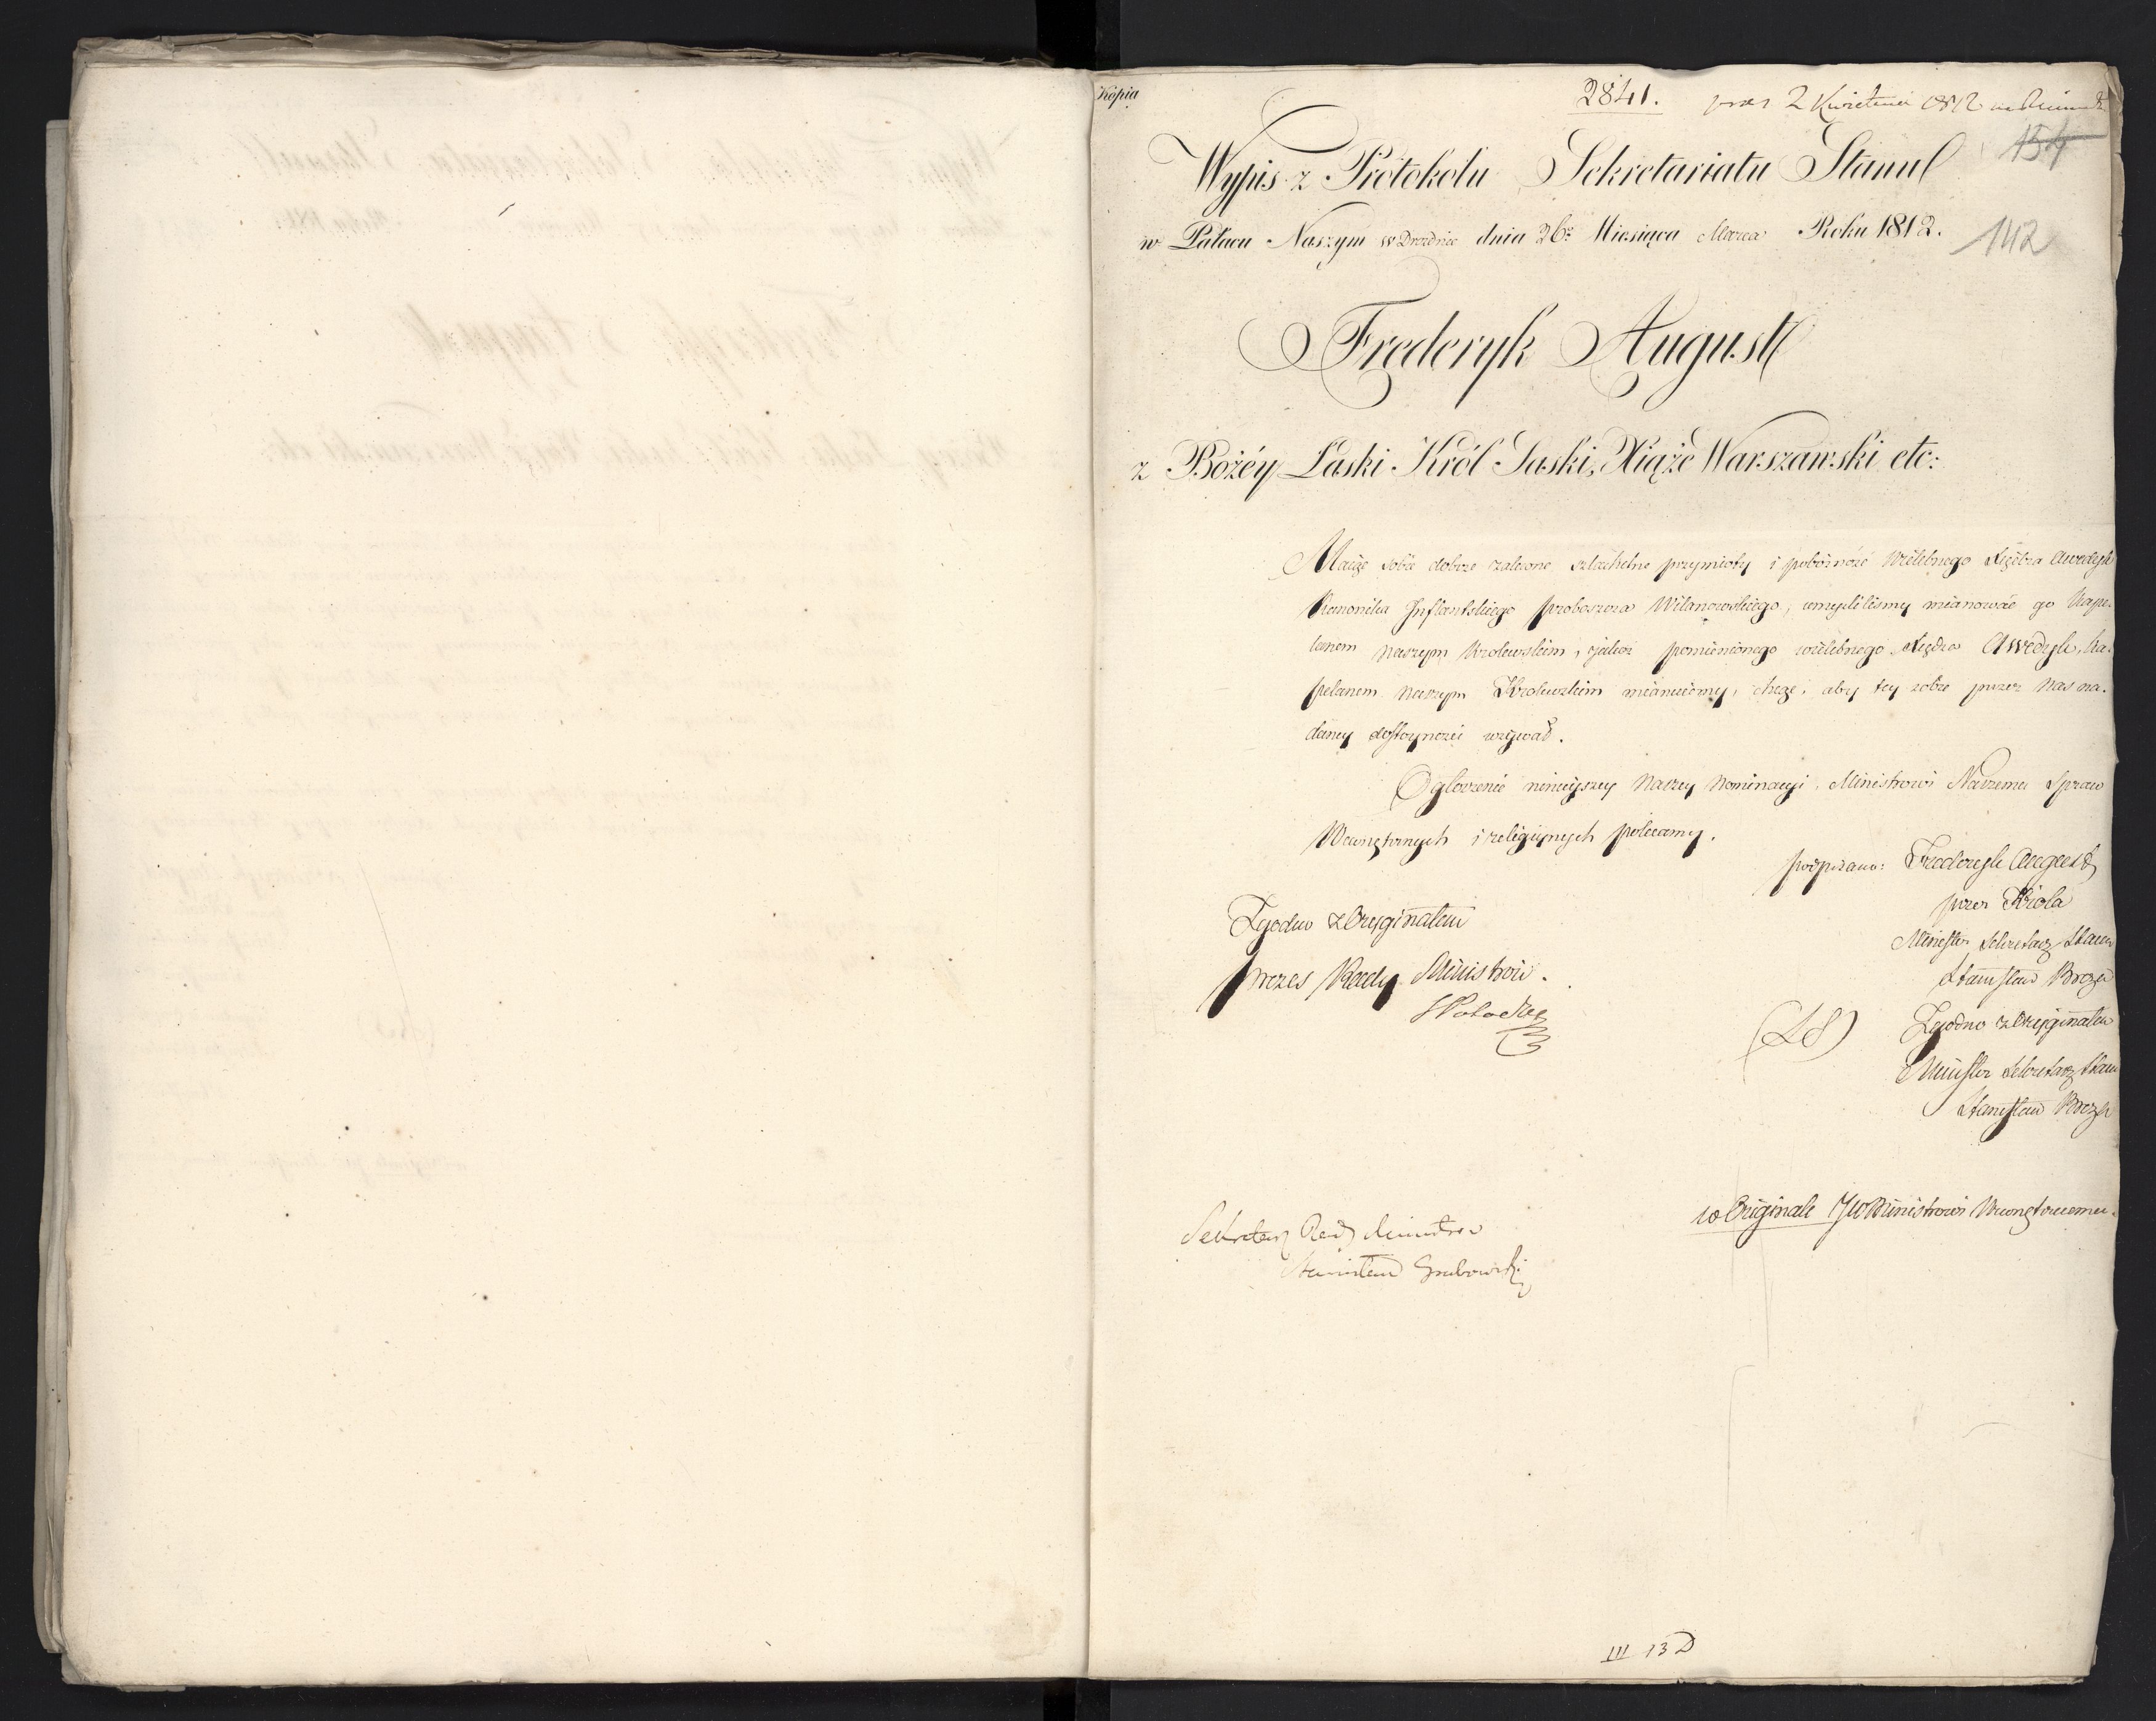 Kopia
2841. 2 Kwietnia 1812
154
Wypis z Protokołu Sekretariatu Stanu
w Pałacu Naszym w Dreznie dnia 26º Miesiąca Marca Roku 1812.
142
Frederyk August
z Bożéy Łaski Król Saski, Xiąże Warszawski etc:
Maiąc sobie dobrze zalecone szlachetne przymioty i pobożność Wielebnego Księdza Awedyk
Kanonika Inflantskiego proboszcza Wilanowskiego, umyśliliśmy mianować go Kape-
lanem naszym Krolewskim, jakoż pomienionego wielebnego Księdza Awedyk, ka-
pelanem naszym Krolewskim mianuiemy, chcąc, aby tey sobie przez nas na-
daney dostoyności używał.
Ogłoszenie ninieyszey Naszey Nominacyi, Ministrowi Naszemu Spraw
Wewnętrznych i religiynych polecamy.
podpisano: Frederyk August
przez Króla
Minister Sekretarz Stanu
Stanisław Breza
Zgodno z Oryginałem
Prezes Rady Ministrów.
S Potocki
(LS) Zgodno z Oryginałem
Minister Sekretarz Stanu
Stanisław Breza
w Originale JW Ministrowi Wewnętrznemu.
Sekretarz Rady Ministrow
Stanisław Grabowski
III 13 D